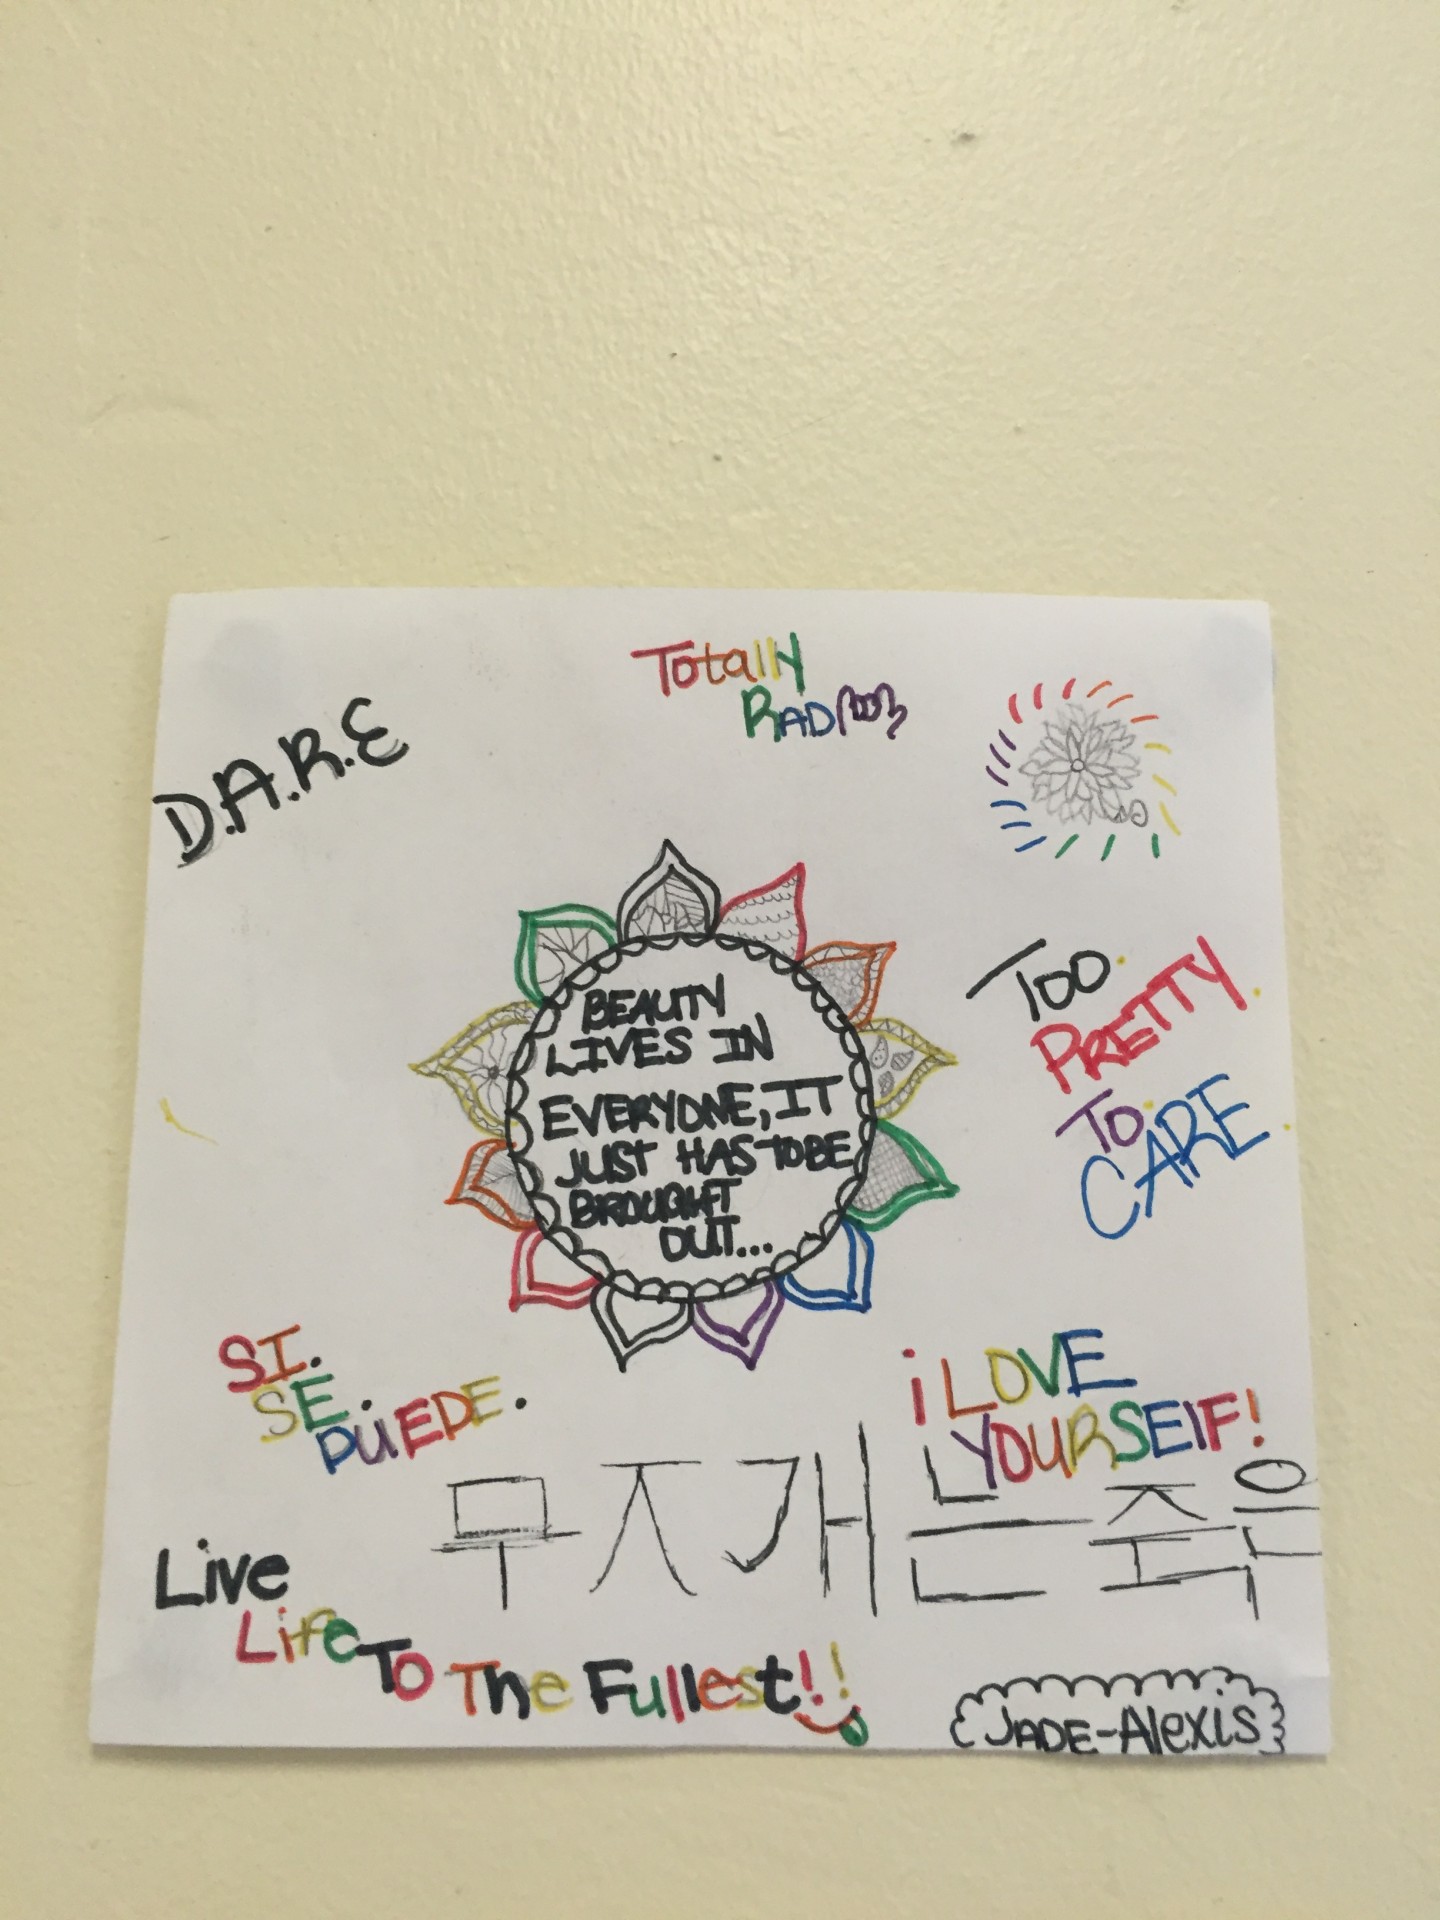 Totally
RAD
D.A.R.E
BEAUTY
LIVES IN
EVERYONE, IT
JUST HAS TO BE
BROUGHT
OUT...
TOO
PRETTY
TO
CARE
SI.
SE.
PUEDE.
i LOVE
YOURSElF!
무지개는죽은
Live
Life To The Fullest!!
JADE-Alexis